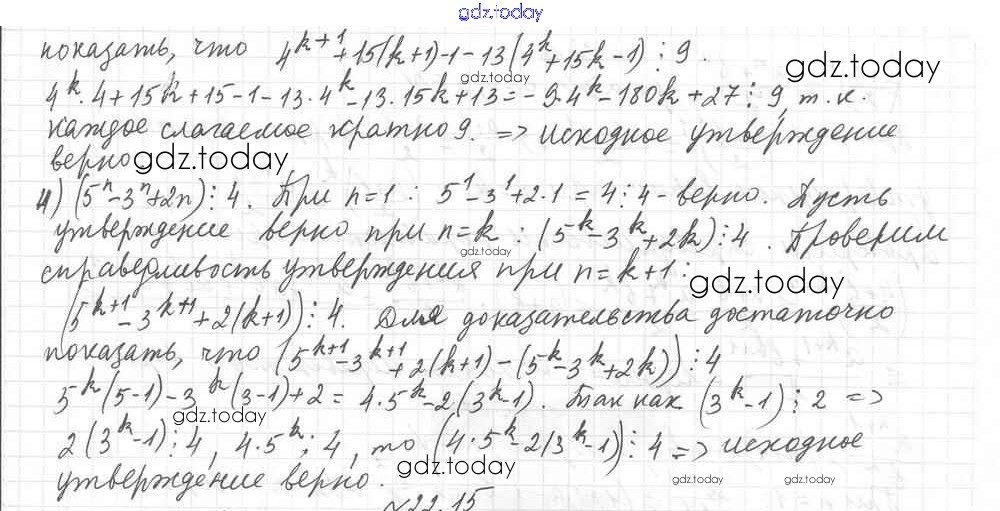 gdz.today
показать, что 4^{k+1}+15(k+1)-1-13(4^k+15k-1)⋮9.
gdz.today
gdz.today
4^k·4+15k+15-1-13·4^k-13·15k+13=-9·4^k-180k+27⋮9, т.к.
каждое слагаемое кратно 9. => исходное утверждение
верно.
gdz.today
4) (5^n-3^n+2n)⋮4. При n=1: 5^1-3^1+2·1=4⋮4-верно. Пусть
утверждение верно при n=k: (5^k-3^k+2k)⋮4. Проверим
gdz.today
справедливость утверждения при n=k+1:
gdz.today
(5^{k+1}-3^{k+1}+2(k+1))⋮4. Для доказательства достаточно
показать, что (5^{k+1}-3^{k+1}+2(k+1)-(5^k-3^k+2k))⋮4
5^k(5-1)-3^k(3-1)+2=4·5^k-2(3^k-1). Так как (3^k-1)⋮2 =>
gdz.today
2(3^k-1)⋮4, 4·5^k⋮4, то (4·5^k-2(3^k-1))⋮4 => исходное
gdz.today
утверждение верно.
gdz.today
gdz.today
№22.15